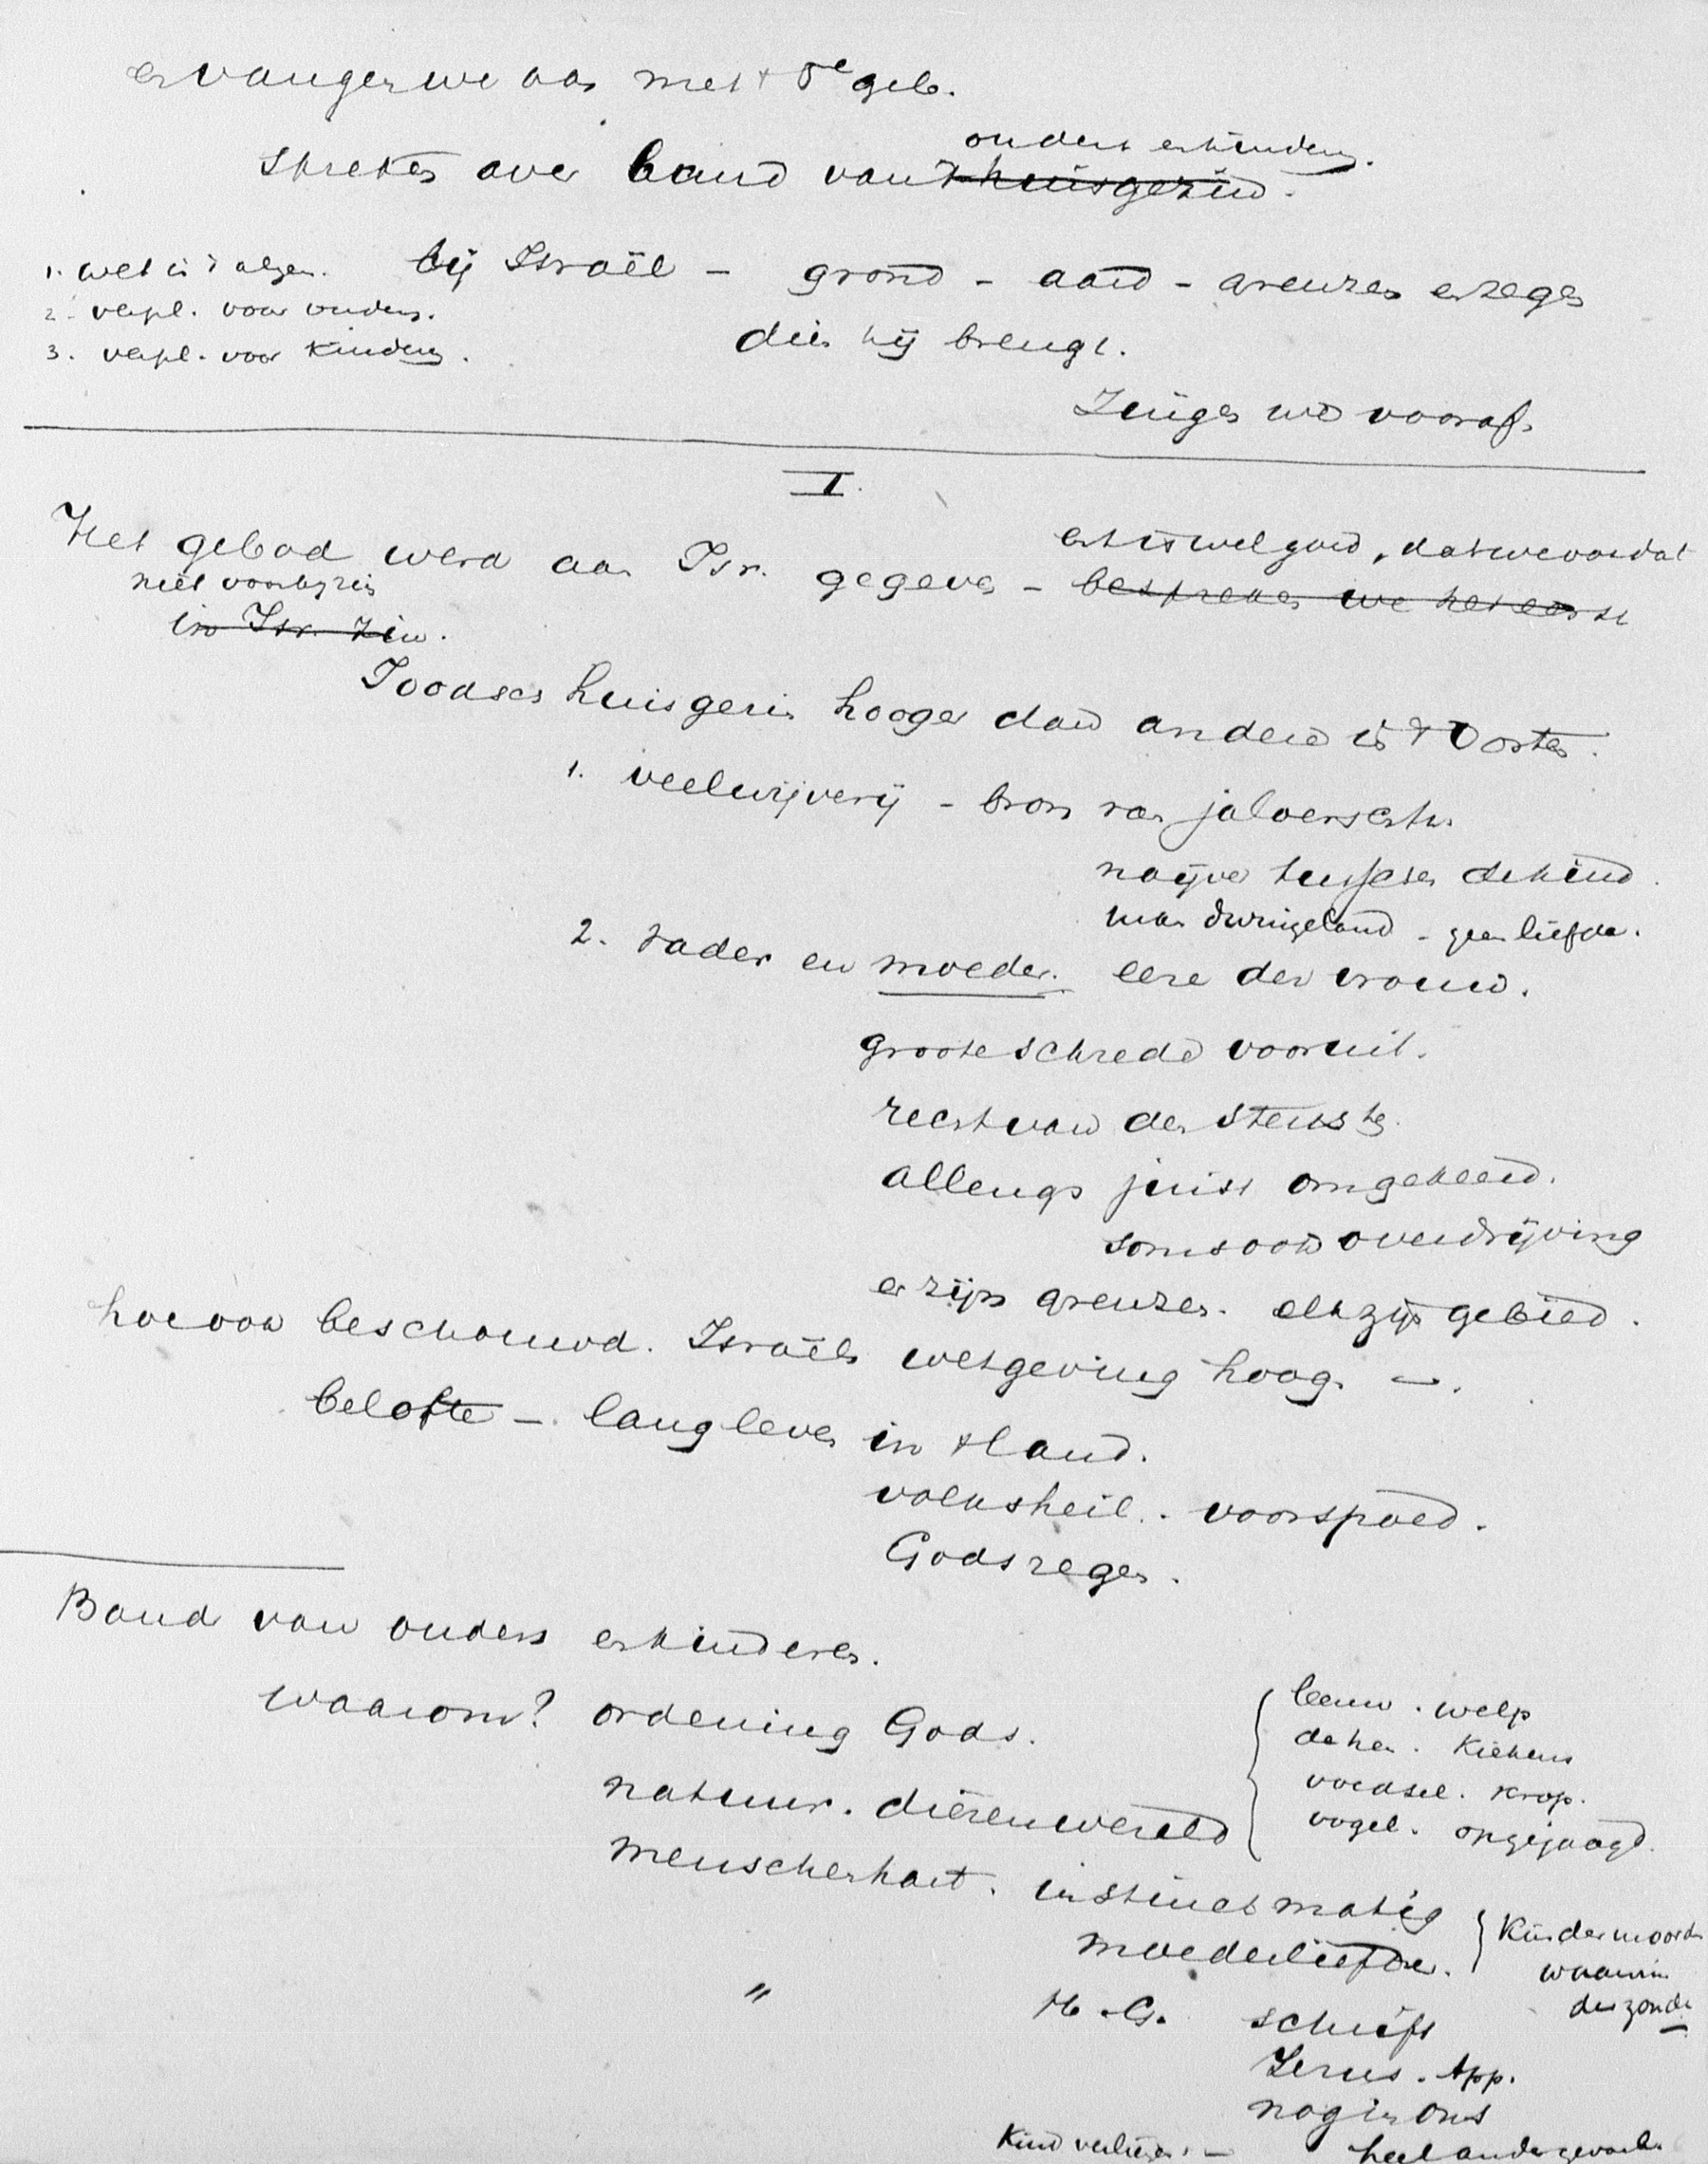 en vangen we aan met 't 5e geb.
ouders en kinderen.
spreken over band van 't huisgezin.
1. wet in 't algem. bij Israël - grond - aard - grenzen en zegen
2. verpl. voor ouders.
3. verpl. voor kinderen.
dien hij brengt.
Zingen we vooraf.
I.
en het is wel goed, dat we voordat
Het gebod werd aan Isr. gegeven - bespreken we het eerst
niet voorbijzien
in Isr. zin.
Joodsch huisgezin hooger dan andere in 't Oosten.
1. veelwijverij - bron van jaloerschh.
naijver tusschen de kind.
man dwingeland - geen liefde.
2. vader en moeder. eere der vrouw.
groote schrede vooruit.
recht van den sterkste
allengs juist omgekeerd.
soms ook overdrijving
er zijn grenzen. elk zijn gebied.
hoe ook beschouwd. Israëls wetgeving hoog -.
belofte - lang leven in 't land.
volksheil. voorspoed.
Gods zegen.
Band van ouders en kinderen.
waarom? ordening Gods.
leeuw. welp
de hen. kiekens
voedsel. krop.
vogel. opgejaagd.
natuur. dierenwereld
menschenhart. instinctmatig
moederliefde.
Kindermoord
waanzin
der zonde
" H. G. schrift
Jezus. App.
nog in ons
Kind verliezen. - heel ander gevoel.